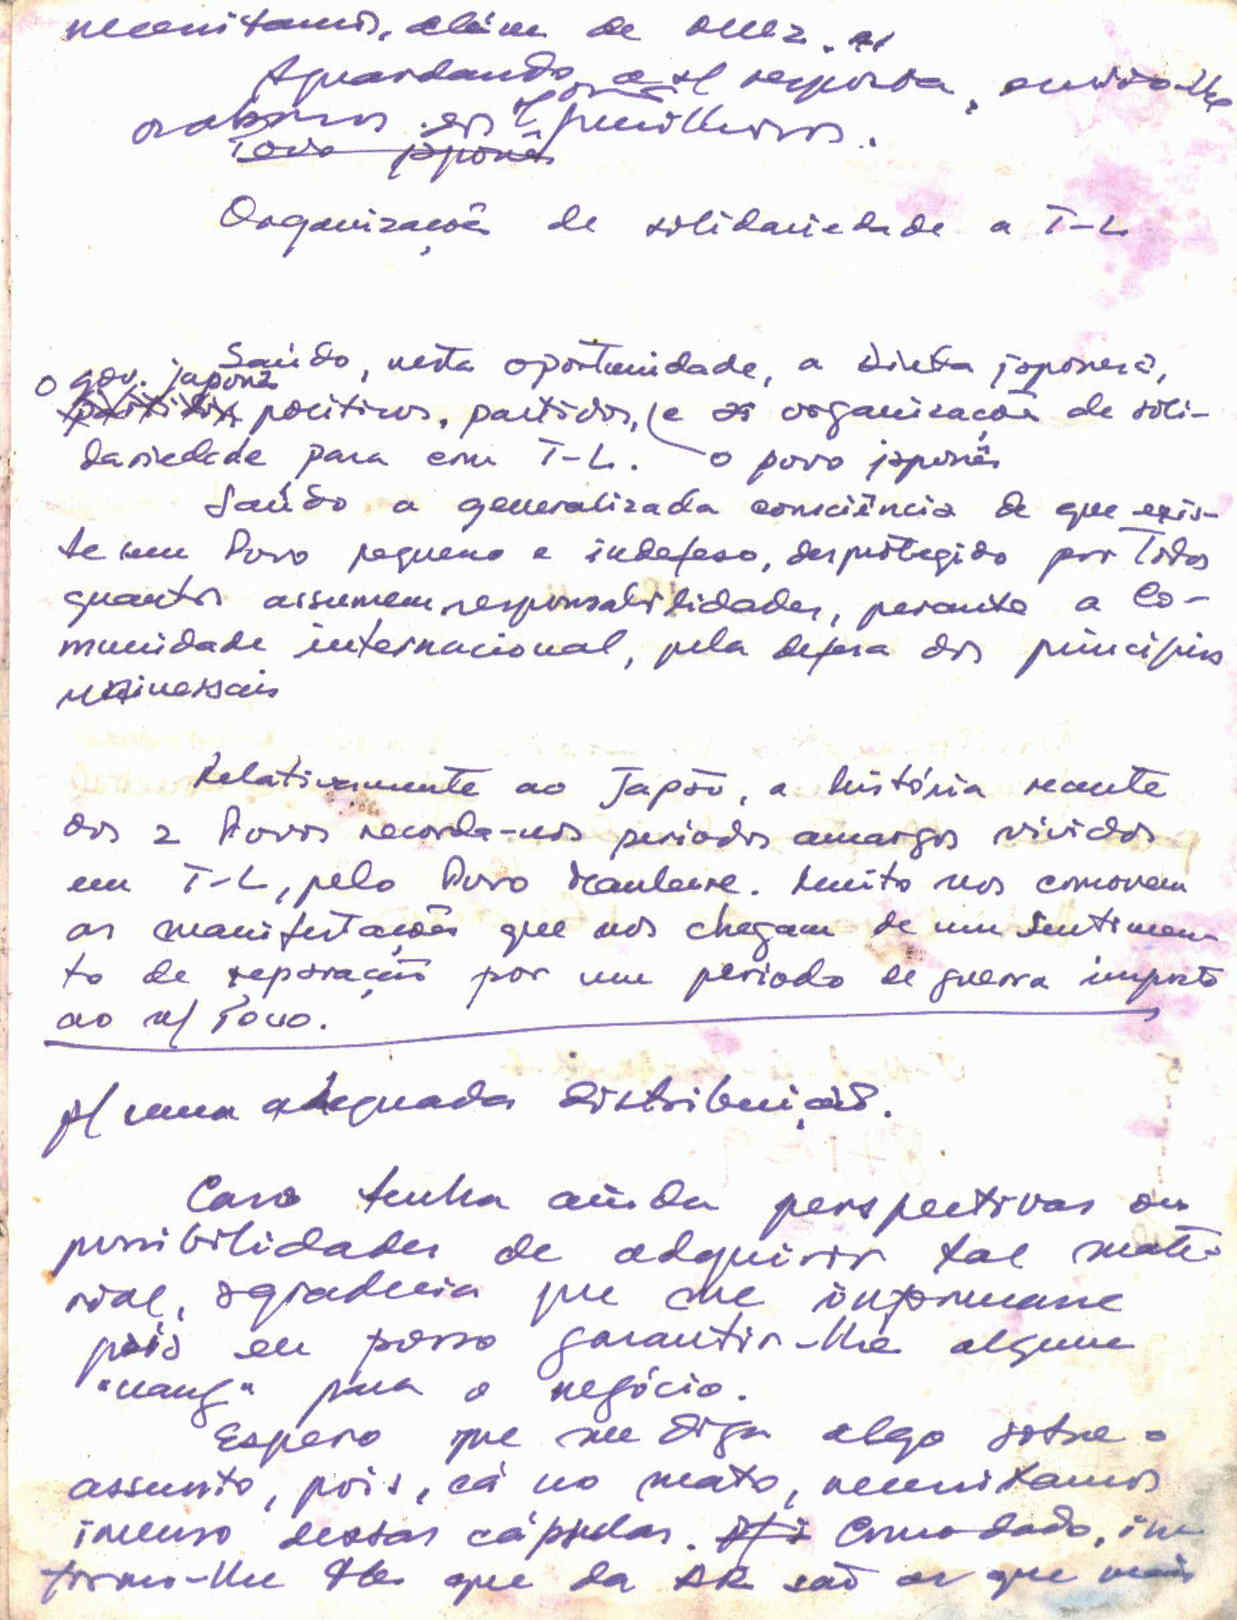 necessitamos, além de
Aguardando a s/ resposta, envio-lhe
os
Povo japonês
Organizações de solidariedade a T-L
Saúdo, nesta oportunidade, a Dieta japonesa,
o gov. japonês
políticos, partidos, e as organizações de soli-
dariedade para com T-L. o povo japonês
Saúdo a generalizada consciência de que exis-
te um Povo pequeno e indefeso, desprotegido por todos
quantos assumem responsabilidades, perante a Co-
munidade internacional, pela defesa dos princípios
universais
Relativamente ao Japão, a história recente
dos 2 Povos recorda-nos periodos amargos vividos
em T-L, pelo Povo Maubere. Muito nos comovem
as manifestações que nos chegam de um sentimen-
to de reparação por um periodo de guerra imposto
ao n/ Povo.
p/ uma adequada distribuição.
Caso tenha ainda perspectivas ou
possibilidades de adquirir tal mate-
rial, agradecia que me informasse
pois eu posso garantir-lhe algum
"uang" para o negócio.
Espero que me diga algo sobre o
assunto, pois, cá no mato, necessitamos
imenso dessas cápsulas. Como dado, in-
formo-lhe que da AR são as que mais